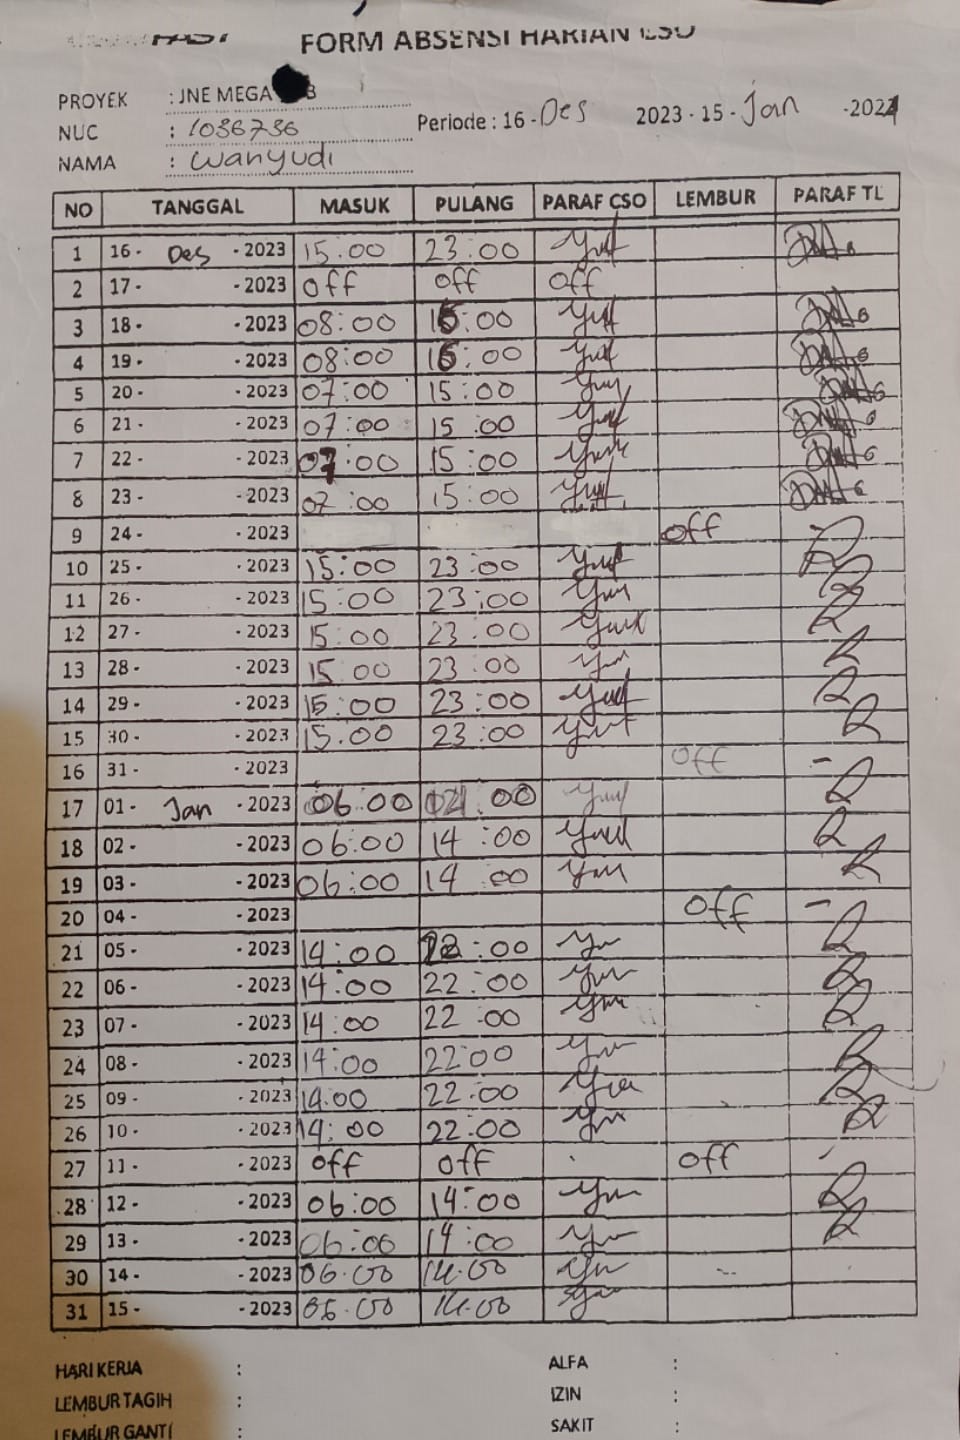 FORM ABSENSI HARIAN CSO
PROYEK : JNE MEGA
NUC : 1036736
NAMA : Wanyudi
Periode : 16 - Des 2023 - 15 - Jan - 2024
NO TANGGAL MASUK PULANG PARAF CSO LEMBUR PARAF TL
1 16 - Des - 2023 15:00 23:00
2 17 - - 2023 off off off
3 18 - - 2023 08:00 16:00
4 19 - - 2023 08:00 16:00
5 20 - - 2023 07:00 15:00
6 21 - - 2023 07:00 15:00
7 22 - - 2023 07:00 15:00
8 23 - - 2023 07:00 15:00
9 24 - - 2023 off
10 25 - - 2023 15:00 23:00
11 26 - - 2023 15:00 23:00
12 27 - - 2023 15:00 23:00
13 28 - - 2023 15:00 23:00
14 29 - - 2023 15:00 23:00
15 30 - - 2023 15.00 23:00
16 31 - - 2023 off -
17 01 - Jan - 2023 06:00
18 02 - - 2023 06:00 14:00
19 03 - - 2023 06:00 14 00
20 04 - - 2023 off -
21 05 - - 2023 14:00 22:00
22 06 - - 2023 14:00 22:00
23 07 - - 2023 14:00 22:00
24 08 - - 2023 14:00 22:00
25 09 - - 2023 14:00 22:00
26 10 - - 2023 14:00 22:00
27 11 - - 2023 off off off
28 12 - - 2023 06:00 14:00
29 13 - - 2023 06:00 14:00
30 14 - - 2023 06.00 14.00
31 15 - - 2023 06.00 14.00
HARI KERJA : ALFA :
LEMBUR TAGIH : IZIN :
LEMBUR GANTI : SAKIT :